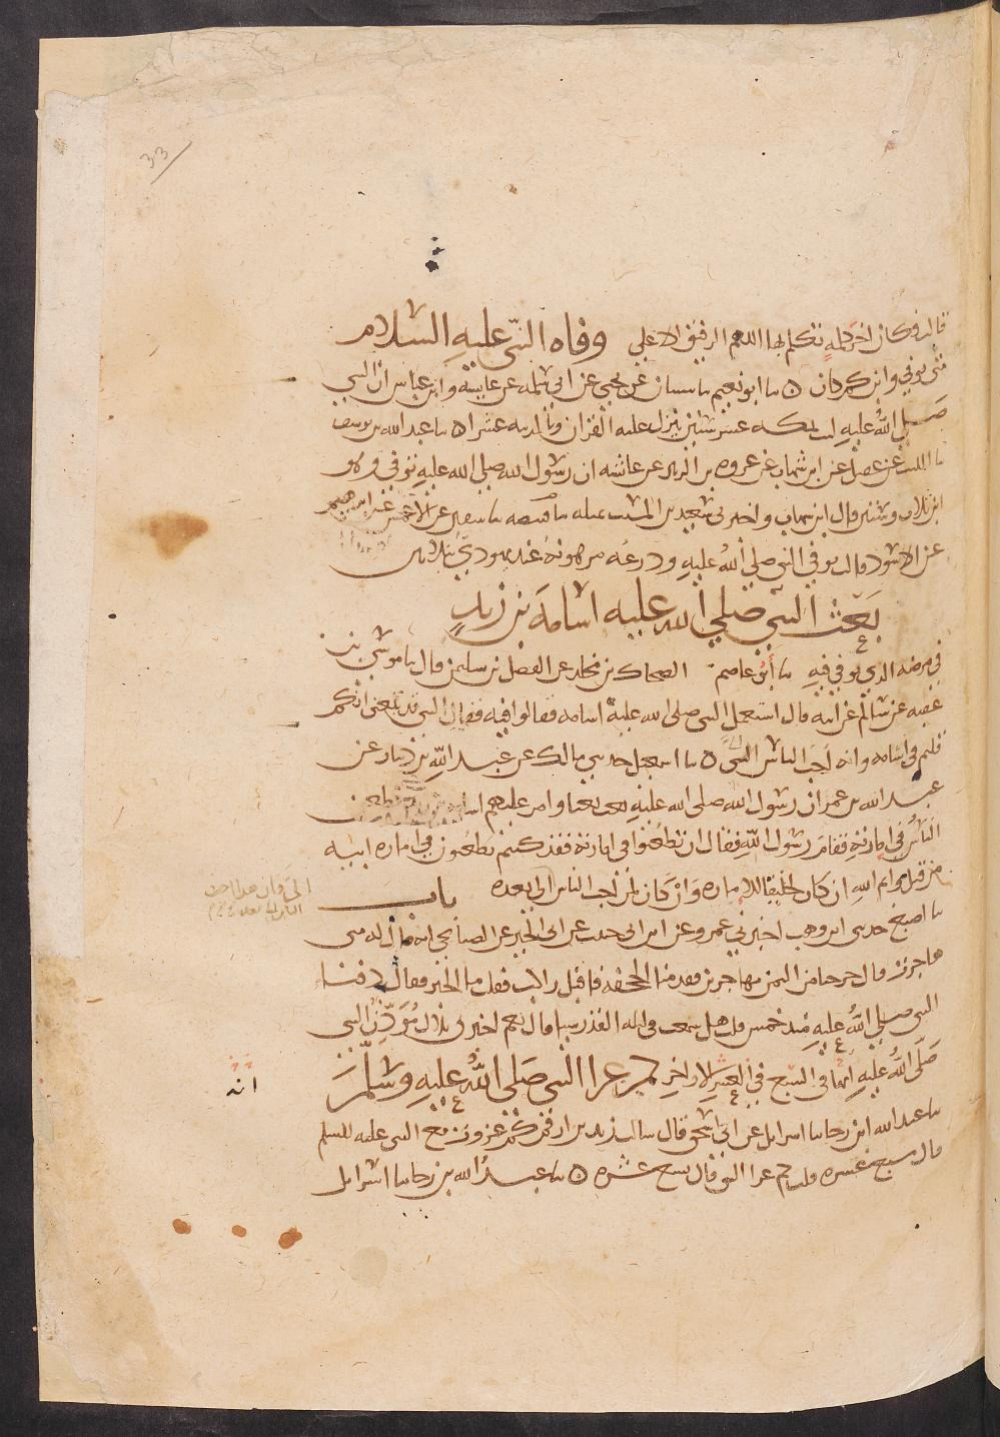 33
قالت وكان اخر كلمة تكلم بها اللهم الرفيق الاعلى وفاه النبي عليه السلام
متى توفي وابن كم كان ٥ نا ابو نعيم نا شيبان عن يحيى عن ابي سلمه عن عايشة وابن عباس ان النبي
صلى الله عليه لبث بمكه عشر سنين ينزل عليه القران وبالمدينه عشرا ٥ نا عبد الله بن يوسف
نا الليث عن عقيل عن ابن شهاب عن عروه بن الزبير عن عائشه ان رسول الله صلى الله عليه توفي وهو
ابن ثلاث وستين قال ابن شهاب واخبرني سعيد بن المسيب مثله نا قبيصه نا سفين عن الاعمش عن ابرهيم
عن الاسود قالت توفي النبي صلى الله عليه ودرعه مرهونة عند يهودي بثلاثين
بعث النبي صلى الله عليه اسامة بن زيد
في مرضه الذي توفي فيه نا ابو عاصم الضحاك بن مخلد عن الفضيل بن سليمن قال نا موسى بن
عقبه عن سالم عن ابيه قال استعمل النبي صلى الله عليه اسامه فقالوا فيه فقال النبي قد بلغني انكم
قلتم في اسامه وانه احب الناس الي ٥ نا اسمعيل حدثني مالك عن عبد الله بن دينار عن
عبد الله بن عمر ان رسول الله صلى الله عليه بعث بعثا وامر عليهم اسامه بن زيد فطعن
الناس في امارته فقام رسول الله فقال ان تطعنوا في امارته فقد كنتم تطعنون في اماره ابيه
من قبل وايم الله ان كان لخليقا للاماره وان كان لمن احب الناس الي بعده باب
الي وان هذا لمن
الناس الي بعده
نا اصبغ حدثني ابن وهب اخبرني عمرو عن ابن ابي حبيب عن ابي الخير عن الصنابحي انه قال له متى
هاجرت قال خرجنا من اليمن مهاجرين فقدمنا الجحفه فاقبل راكب فقلت ما الخبر فقال دفنا
النبي صلى الله عليه منذ خمس قلت هل سمعت في ليله القدر شيا قال نعم اخبرني بلال مؤذن النبي
صلى الله عليه انها في السبع في العشر الاواخر كم غزا النبي صلى الله عليه وسلم
انه
نا عبد الله ابن رجا نا اسرايل عن ابي اسحق قال سالت زيد بن ارقم كم غزوت مع النبي عليه السلم
قال سبع عشره قلت كم غزا النبي قال تسع عشره ٥ نا عبد الله بن رجا نا اسرايل